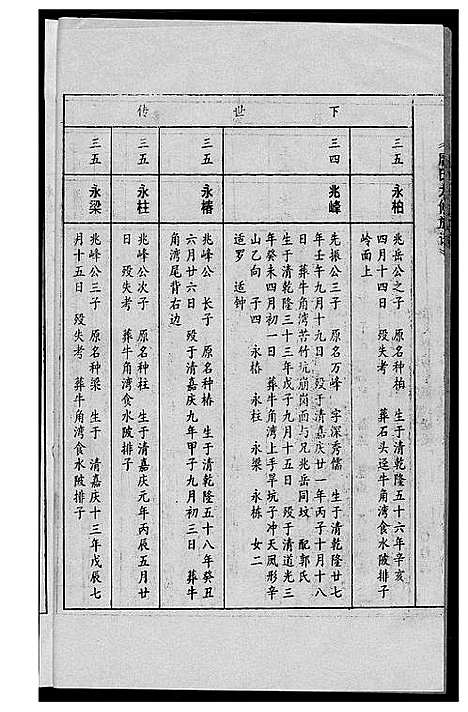 下世传
三五
永柏
兆岳公之子 原名种柏 生于清乾隆五十六年辛亥
四月十四日 殁失考 葬石头迳牛角湾食水陂排子
岭面上
三四
兆峰
先振公三子 原名万峰 字深秀儒 生于清乾隆廿七
年壬午九月十九日 殁于清嘉庆廿一年丙子十月十八
日 葬牛角湾苦竹坑崩岗面与兄兆岳同坟 配郭氏
生于清乾隆三十三年戊子九月十五日 殁于清道光三
年癸未四月初一日 葬牛角湾上手旱坑子冲天凤形辛
山乙向 子四 永椿 永柱 永梁 永栋 女二
适罗 适钟
三五
永椿
兆峰公 长子 原名种椿 生于清乾隆五十八年癸丑
六月廿六日 殁于清嘉庆九年甲子九月初三日 葬牛
角湾尾背右边
三五
永柱
兆峰公次子 原名种柱 生于清嘉庆元年丙辰五月廿
日 殁失考 葬牛角湾食水陂排子
三五
永梁
兆峰公三子 原名种梁 生于 清嘉庆十三年戊辰七
月十五日 殁失考 葬牛角湾食水陂排子